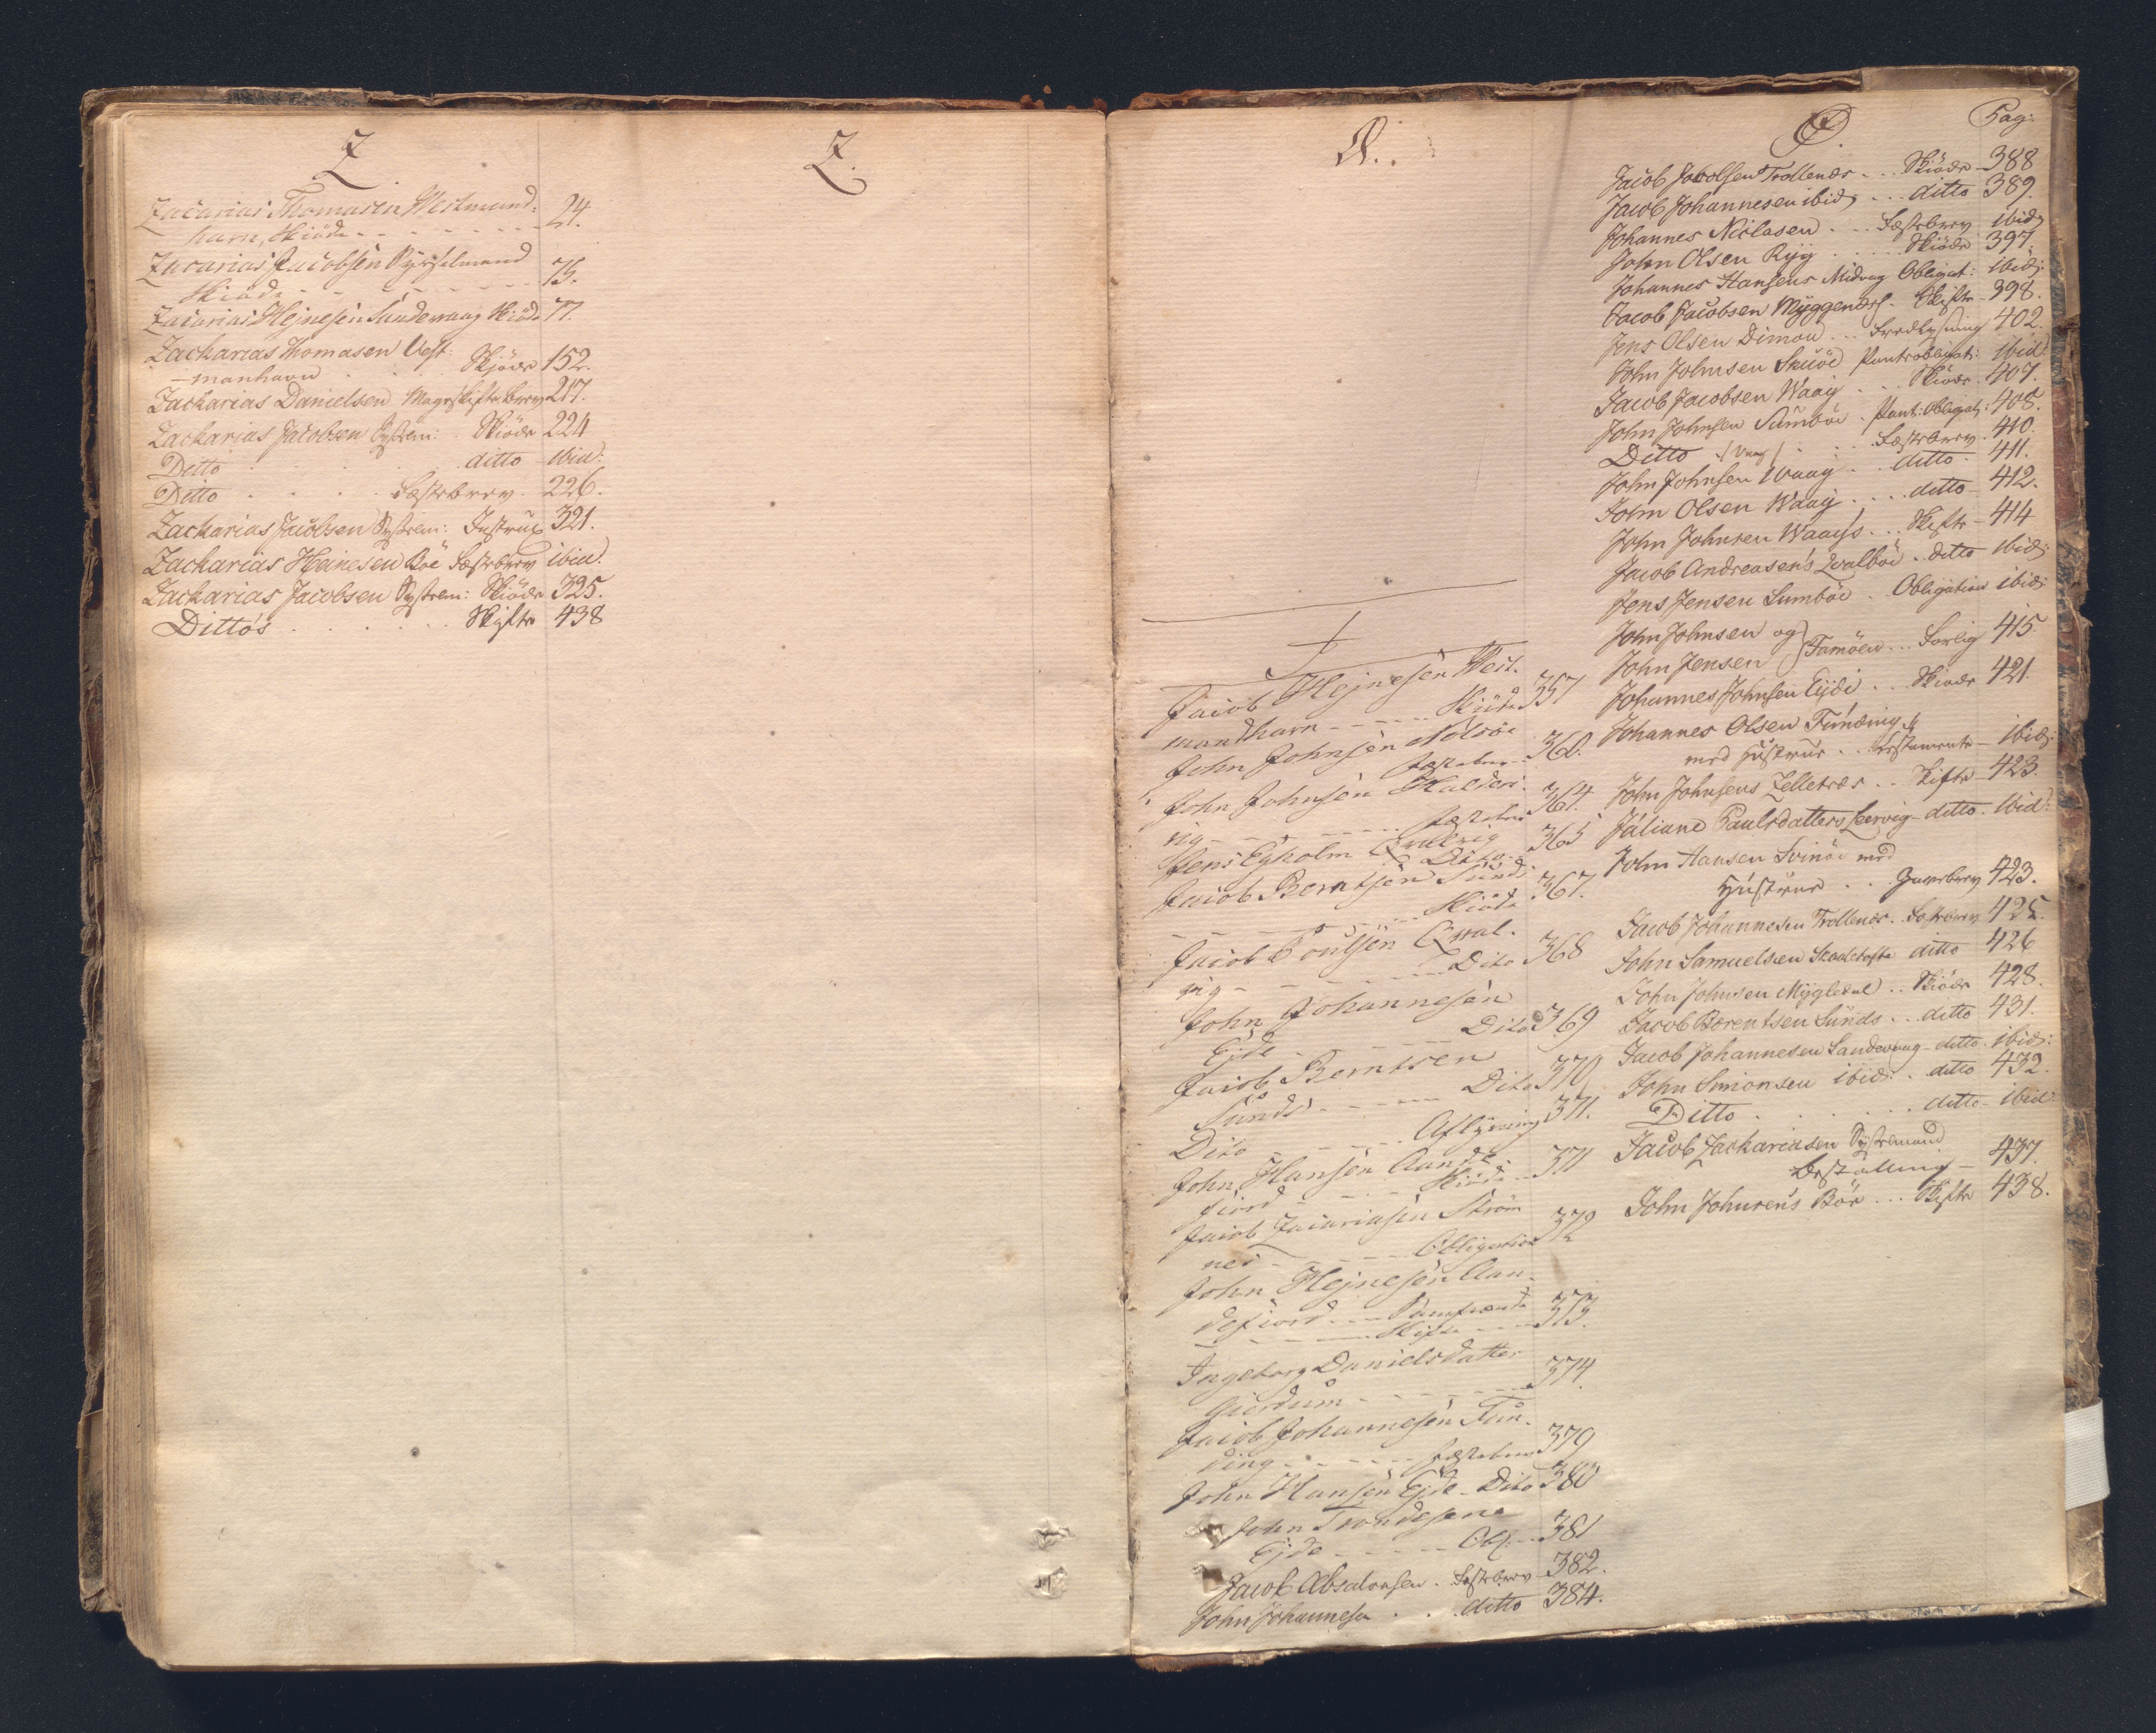 Z
Zacarias Thomasen Westmand:
havn, Skiöde - - - - - - - 24.
Zacarias Jacobsen Sysselmand
Skiöde - - - - - - - 75.
Zacarias Hejnesen Sandevaag Skiöde 77.
Zacharias Thomasen Vest:
-manhavn . . Skjöde 152.
Zacharias Danielsen Mageskiftebrev 217.
Zacharias Jacobsen Sysselm: . Skiöde 224
Ditto . . . . ditto - ibid:
Ditto . . . . Fæstebrev - 226.
Zacharias Jacobsen Sysselm: Instrux 321.
Zacharias Heinesen Böe Fæstebrev ibid:
Zacharias Jacobsen Sysselm: Skiöde 325.
Ditto's . . . . . Skifte 438
Z.
Ø..
J
Jacob Hejnesen West-
mandhavn - - - - Skiöde 357
John Johnsen Nolsöe
Fæstebrev 360.
John Johnsen Halders-
vig - - - - - Fæstebrev 364.
Jens Egholm Qvalvig Dito 365
Jacob Berntsen Sund:
- - - - - - Skiöde 367.
Jacob Poulsen Qval-
vig - - - - - Dito 368
John Johannesen
Ejde - - - - - Dito 369
Jacob Berntsen
Sunds - - - - Dito 370
Dito - - - - Aflysning 371.
John Hansen Aande-
fiord - - - - Skiöde 371
Jacob Zacariasen Ström-
nes - - - - Obligation 372
John Hejnesen Aan-
defiord - - - Samfrænde
- - - - - Skifte - - - 373.
Ingeborg Danielsdatter
Giordum - - - - - - 374
Jacob Johannesen Fun-
ding - - - - - Fæstebrev 379
John Hansen Ejde - Dito 380
John Trondesens
Ejde - - - - - Obl. - - 381
Jacob Absalonsen . Fæstebrev - 382.
John Johannesen . . ditto 384.
J.
Pag:
Jacob Jacobsen Trollenæs . . . Skiöde - 388
Jacob Johannesen ibid: . . . ditto 389.
Johannes Niclasen . . . Fæstebrev ibid:
John Olsen Ryg . . . . Skiöde 397.
Johannes Hansens Midvag Obligat: ibid:
Jacob Jacobsen Myggenæs . Skifte 398.
Jens Olsen Dimon . . . Fredlysning 402.
John Johnsen Skuöe Panteobligat: ibid:
Jacob Jacobsen Waag . . . Skiöde 407.
John Johnsen Sumböe . Pant:Obligat: 408.
Ditto /: Vaag :/ . . . Fæstebrev 410.
John Johnsen Waag . . ditto 411.
John Olsen Waag . . . . ditto - 412.
John Johnsen Waags . . . Skifte - 414
Jacob Andreasen's Qvalböe . ditto ibid:
Jens Jensen Sumböe . . Obligation ibid:
John Johnsen og
John Jensen } Famöen . . . Forlig 415
Johannes Johnsen Eyde . . . Skiöde 421.
Johannes Olsen Funding
med Hustrue . . Testamente - ibid:
John Johnsens Zelletræs . . Skifte - 423.
Juliane Paulsdatters Lervig - ditto . ibid:
John Hansen Svinöe med
Hustrue . . Gavebrev 423.
Jacob Johannesen Trollenæs . Fæstebrev 425.
John Samuelsen Skaaletofte ditto 426
John Johnsen Mygledal . . Skiöde 428.
Jacob Berentsen Sunds . . . ditto 431.
Jacob Johannesen Sandevaag - ditto . ibid:
John Simonsen ibid: . . ditto 432.
Ditto . . . . . . ditto - ibid:
Jacob Zachariasen Sysselmand
Bestalling - 437.
John Johnsen's Böe . . . Skifte 438.